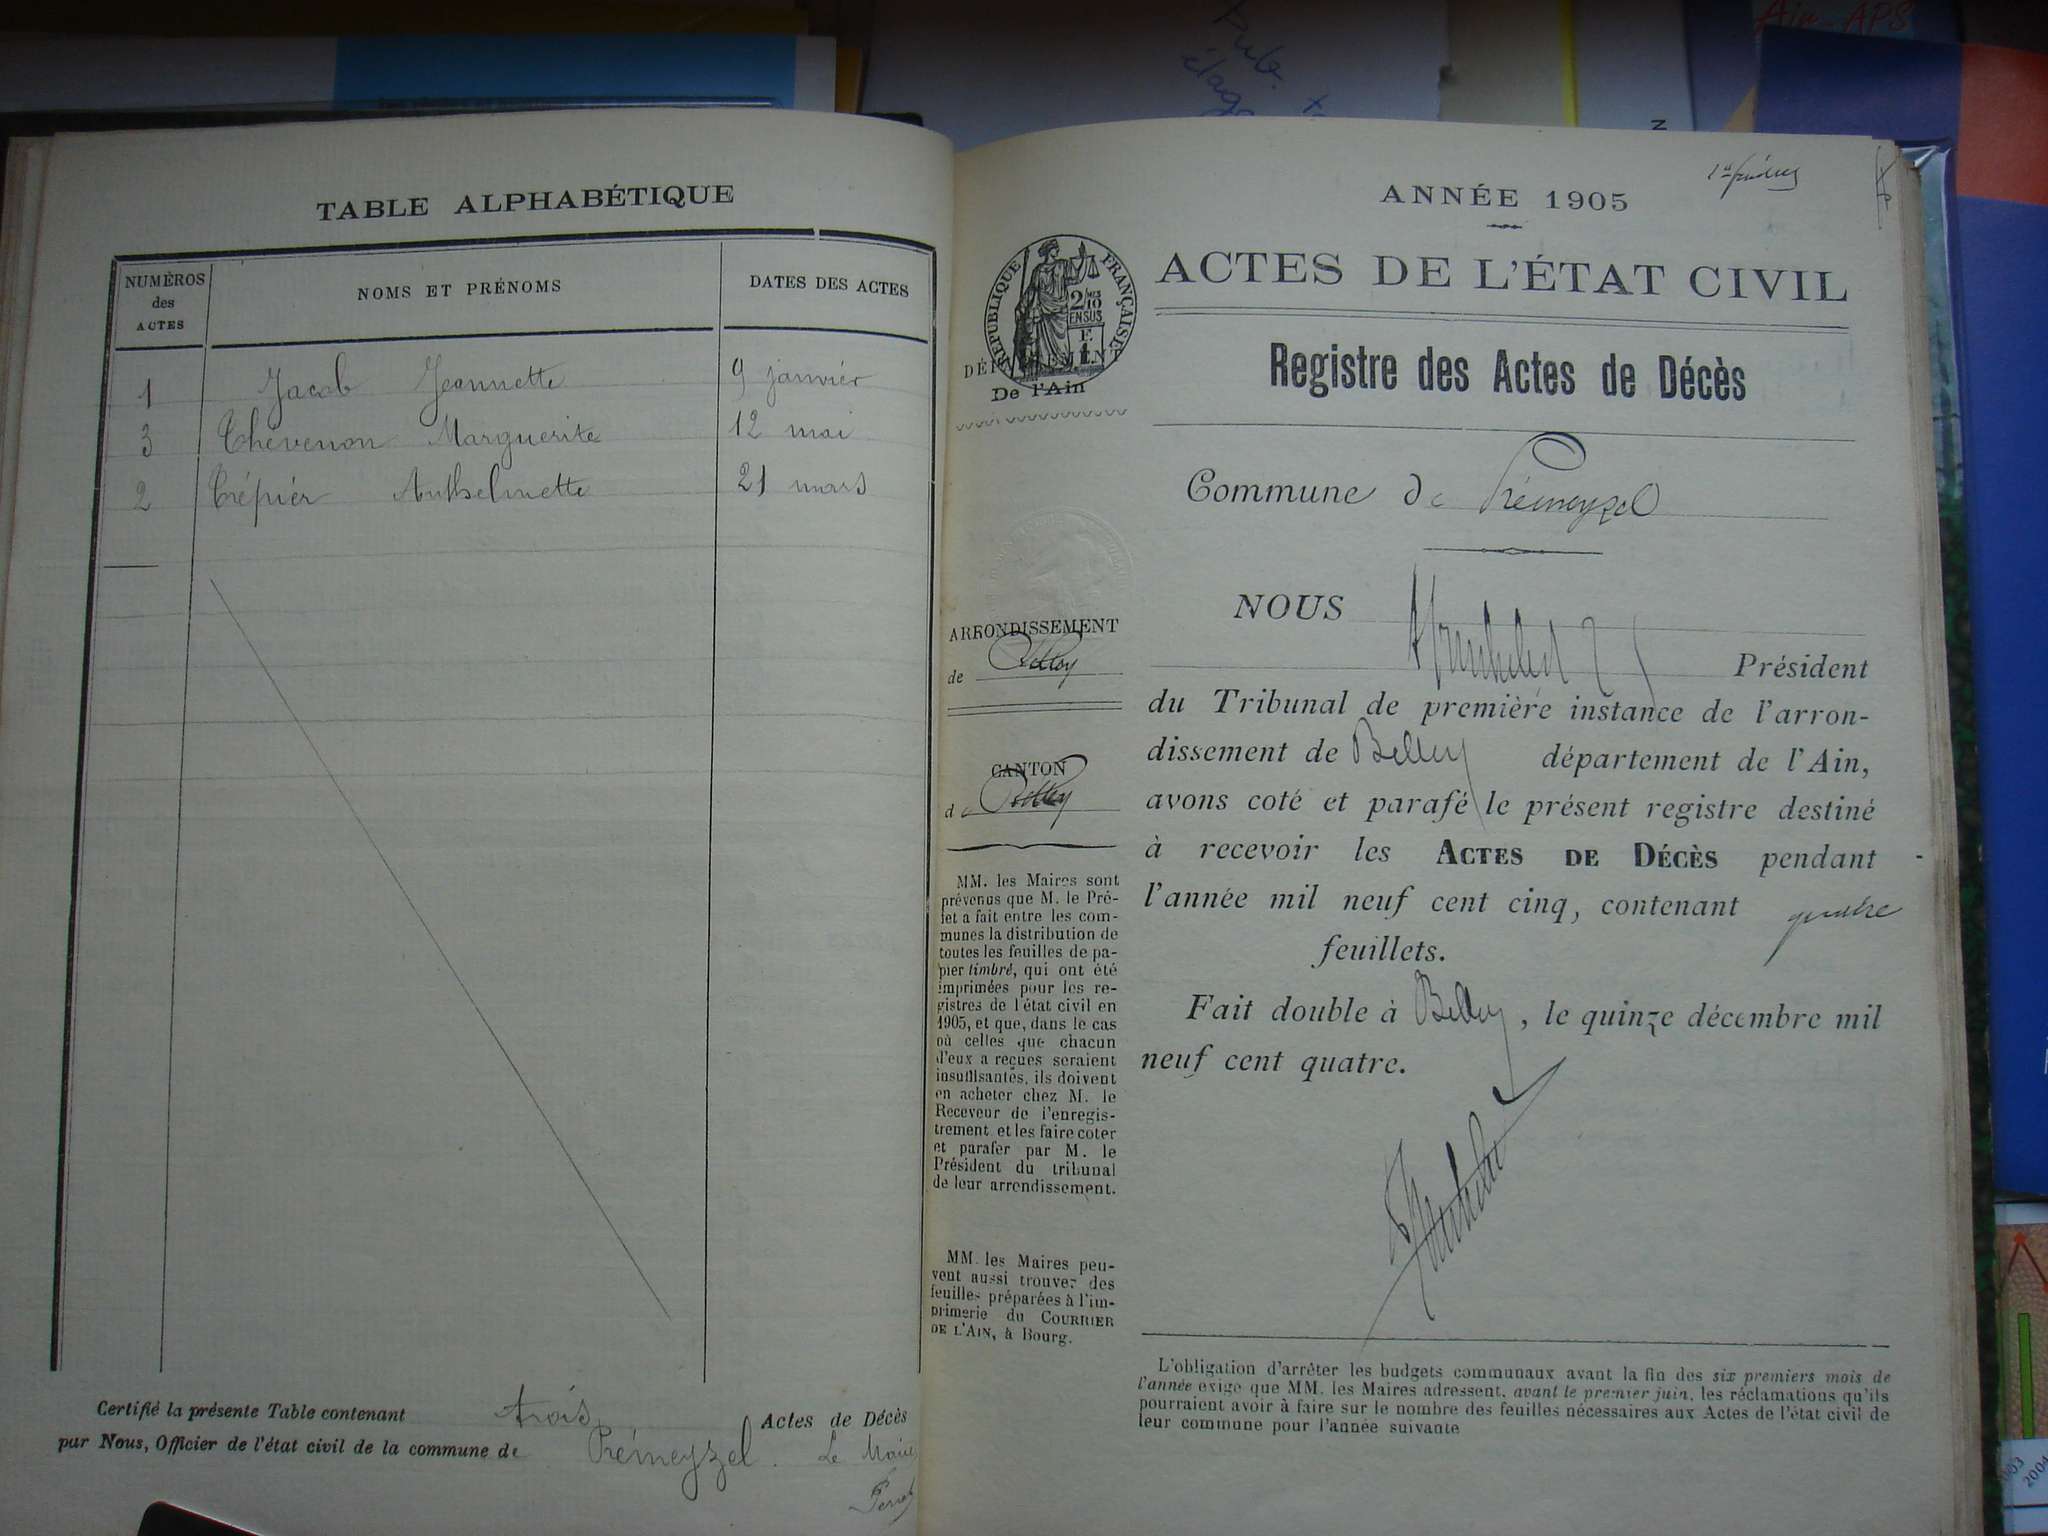 Ain - APS
TABLE ALPHABÉTIQUE
NUMÉROS des ACTES
NOMS ET PRÉNOMS
DATES DES ACTES
1 Jacob Jeannette 9 janvier
3 Thevenon Marguerite 12 mai
2 Trépier Anthelmette 21 mars
Certifié la présente Table contenant trois Actes de Décès
par Nous, Officier de l'état civil de la commune de Prémeyzel. Le Maire
ANNÉE 1905
RÉPUBLIQUE FRANÇAISE
2/10 MES
EN SUS
1 F.
DÉPARTEMENT
De l'Ain
ACTES DE L'ÉTAT CIVIL
Registre des Actes de Décès
Commune de Prémeyzel
ARRONDISSEMENT
de Belley
CANTON
de Belley
MM. les Maires sont
prévenus que M. le Pré-
fet a fait entre les com-
munes la distribution de
toutes les feuilles de pa-
pier timbré, qui ont été
imprimées pour les re-
gistres de l'état civil en
1905, et que, dans le cas
où celles que chacun
d'eux a reçues seraient
insuffisantes, ils doivent
en acheter chez M. le
Receveur de l'enregis-
trement et les faire coter
et parafer par M. le
Président du tribunal
de leur arrondissement.
MM. les Maires peu-
vent aussi trouver des
feuilles préparées à l'im-
primerie du COURRIER
DE L'AIN, à Bourg.
NOUS
Président
du Tribunal de première instance de l'arron-
dissement de Belley département de l'Ain,
avons coté et parafé le présent registre destiné
à recevoir les ACTES DE DÉCÈS pendant
l'année mil neuf cent cinq, contenant quatre
feuillets.
Fait double à Belley, le quinze décembre mil
neuf cent quatre.
L'obligation d'arrêter les budgets communaux avant la fin des six premiers mois de
l'année exige que MM. les Maires adressent, avant le premier juin, les réclamations qu'ils
pourraient avoir à faire sur le nombre des feuilles nécessaires aux Actes de l'état civil de
leur commune pour l'année suivante
2003
2004